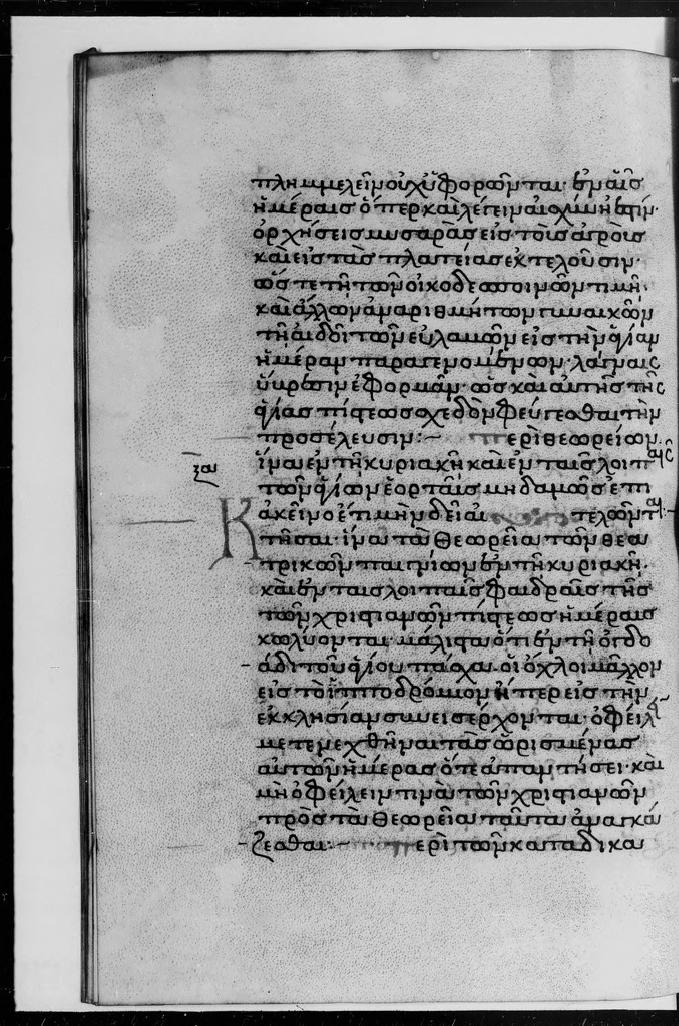 πλημμελεῖν οὐχ ὑφορῶνται· ἐν αἷς
ἡμέραις ὅπερ καὶ λέγειν αἰσχύνη ἐστίν·
ὀρχήσεις μυσαρὰς εἰς τοὺς ἀγροὺς
καὶ εἰς τὰς πλατείας ἐκτελοῦσιν·
ὥστε τῇ τῶν οἰκοδεσποινῶν τιμῇ·
καὶ ἄλλων ἀναριθμήτων γυναικῶν
τῇ αἰδοῖ τῶν εὐλαβῶν εἰς τὴν ἁγίαν
ἡμέραν παραγενομένων· λάγναις
ὕβρεσιν ἐφορμᾶν· ὡς καὶ αὐτῆς τῆς
ἁγίας πίστεως σχεδὸν φεύγεσθαι τὴν
προσέλευσιν:— περὶ θεωρείων
ἵνα ἐν τῇ κυριακῇ καὶ ἐν ταῖς λοιπαῖς
ξα
τῶν ἁγίων ἑορταῖς μηδαμῶς ἐπι
Κἀκεῖνο ἔτι μὴν δεῖ αἰ τελῶνται:—
τῆσαι· ἵνα τὰ θεωρεῖα τῶν θεα
τρικῶν παιγνίων ἐν τῇ κυριακῇ·
καὶ ἐν ταῖς λοιπαῖς φαιδραῖς τῆς
τῶν χριστιανῶν πίστεως ἡμέραις
κωλύονται· μάλιστα ὅτι ἐν τῇ ὀγδο
άδι τοῦ ἁγίου πάσχα· οἱ ὄχλοι μᾶλλον
εἰς τὸ ἱπποδρόμιον ἤπερ εἰς τὴν
ἐκκλησίαν συνεισέρχονται· ὀφείλει
μετενεχθῆναι τὰς ὡρισμένας
αὐτῶν ἡμέρας ὅτε ἀπαντήσει· καὶ
μὴ ὀφείλειν τινὰ τῶν χριστιανῶν
πρὸς τὰ θεωρεῖα ταῦτα ἀναγκά
ζεσθαι:— περὶ τῶν καταδικα